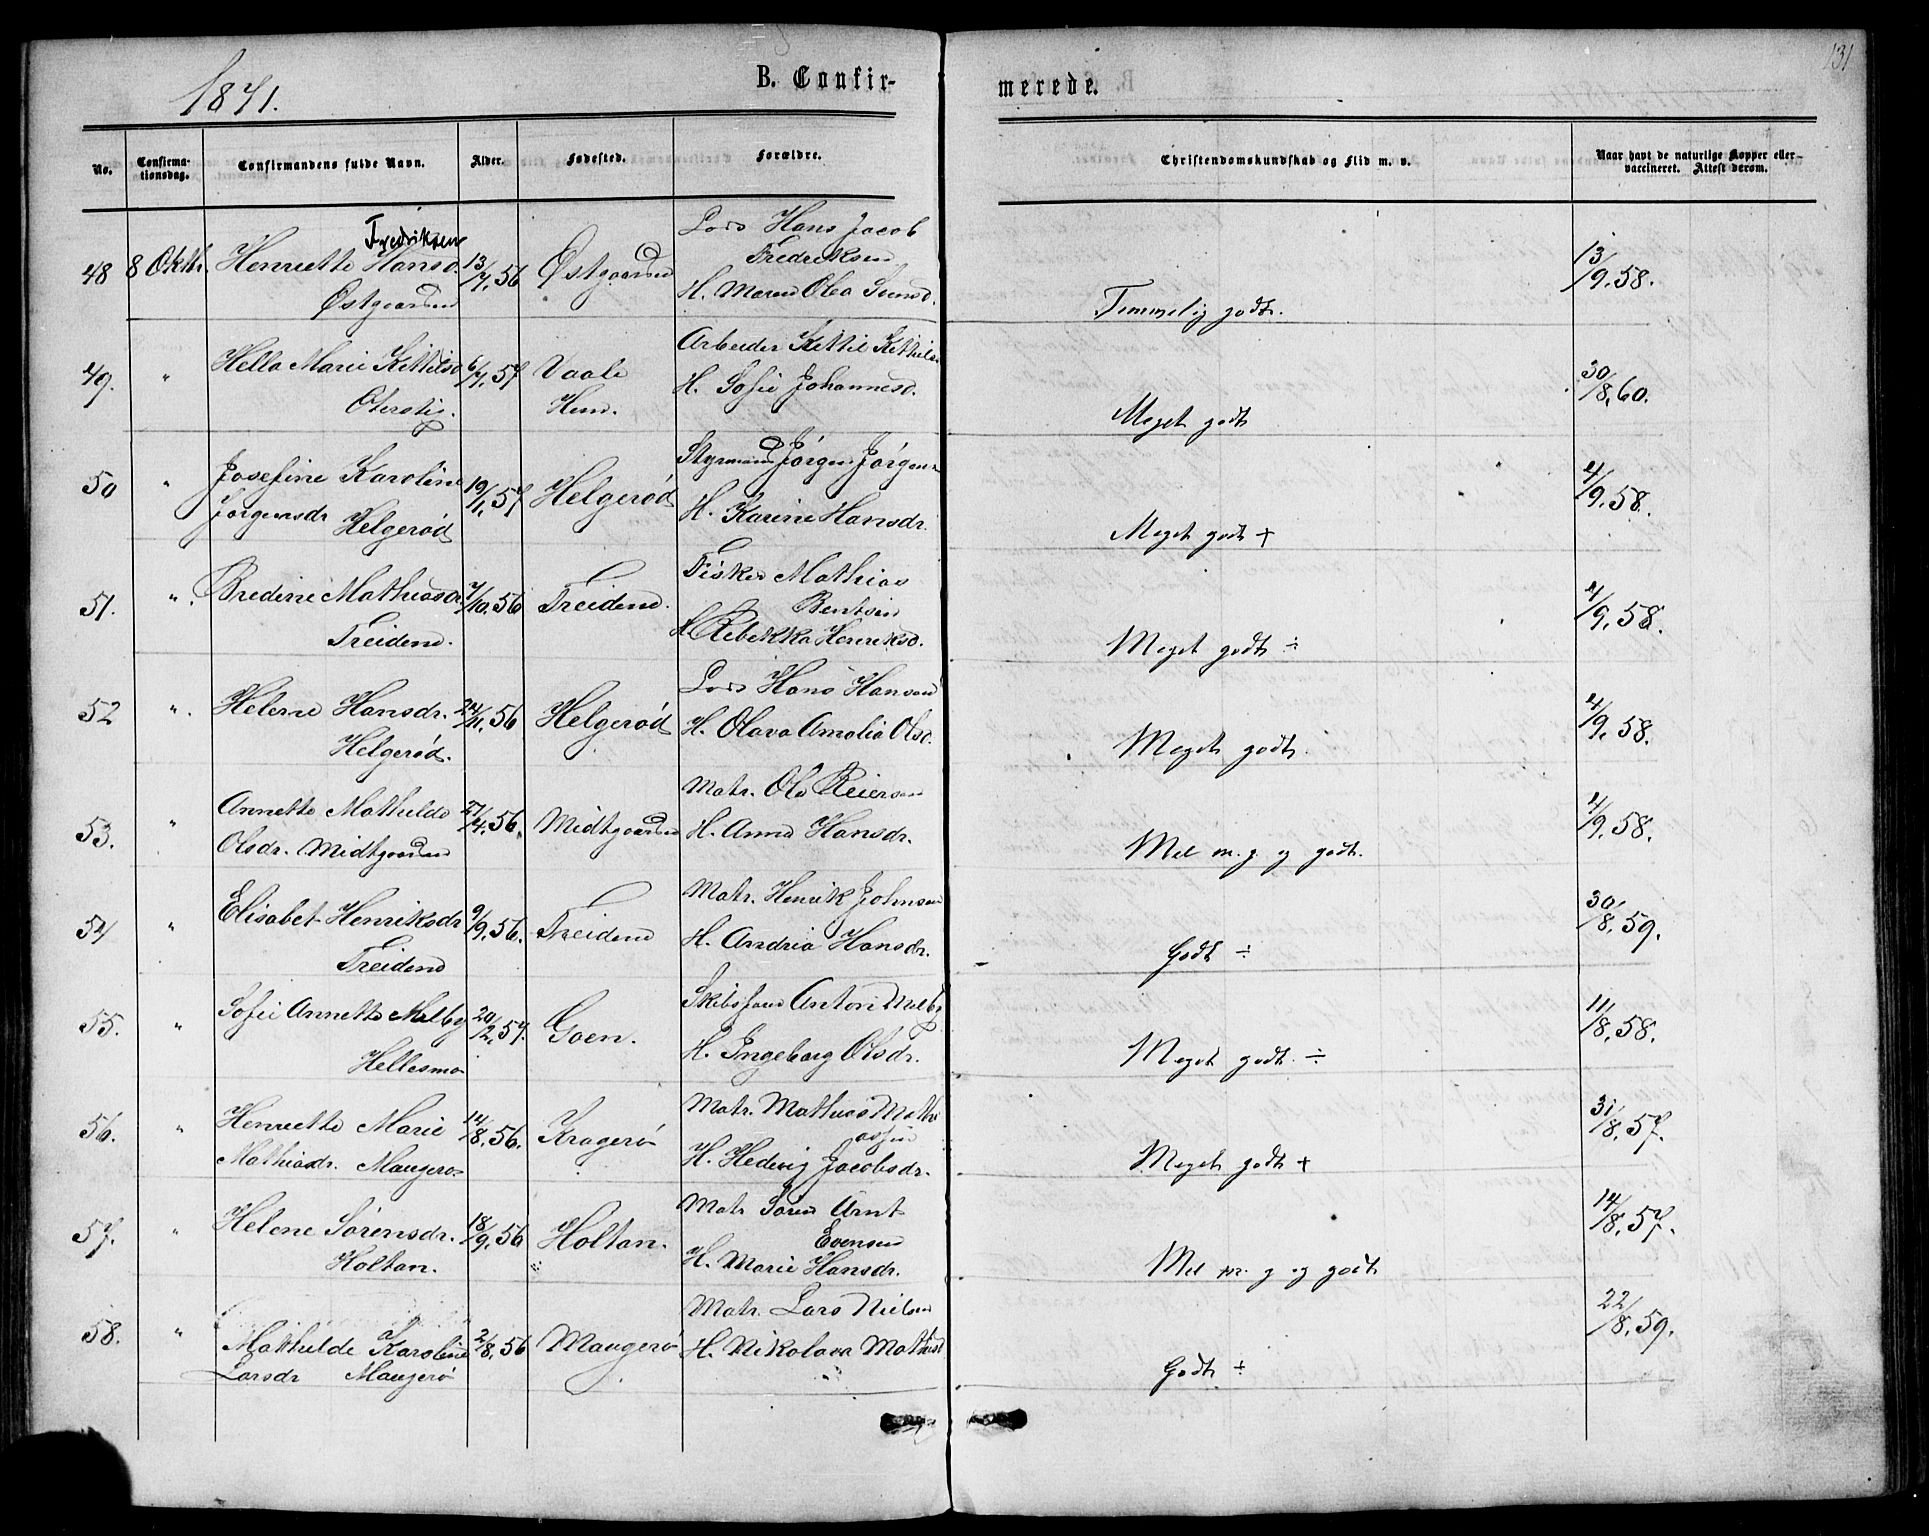 131
1871.
B. Confir-
merede.
No.
Confirma-
tionsdag.
Confirmandens fulde Navn.
Alder.
Fødested.
Forældre.
Christendomskundskab og Flid m. v.
Naar havt de naturlige Kopper eller
vaccineret. Attest derom.
Fredriksen
48 8 Oktbr. Henriette Hansd. 13/7, 56 Østgaarden Lods Hans Jacob
Østgaarden
Fredriksen
H. Maren Olea
Temmelig godt.
13/9, 58.
49. " Hella Marie Kittilsd 6/7, 57 Vaale Arbeider Kittil Kittils
Oterstig. Hem. H. Sofie Johannesd.
Meget godt
30/8, 60.
50 " Josefine Karoline 19/1, 57 Helgerød Styrmand Jørgen Jørgen
Jørgensdr Helgerød H. Karine Hansdr.
Meget godt +
4/9, 58.
51. " Bredine Mathiasdr 7/10, 56 Treidene. Fisker Mathias
Treidene. Bentsen
H. Rebekka Henriksd.
Meget godt ÷
4/9, 58.
52 " Helene Hansdr. 24/11, 56 Helgerød Lods Hans Hansen
Helgerød. H. Olava Amalia Olsd.
Meget godt.
4/9, 58.
53. " Annette Mathilde 27/4, 56. Midtgaarden Matr. Ole Reiersen
Olsdr. Midtgaarden H. Anne Hansdr.
Mel m. g. og godt.
4/9, 58.
54 " Elisabet Henriksdr 9/9, 56. Treidene Matr. Henrik Johnsen
Treidene H. Andria Hansdr.
Godt ÷
30/8, 59.
55. " Sofie Annette Melby 20/2, 57. Goen. Anton Melby
Hellesmo H. Ingeborg Olsdr.
Meget godt. ÷
11/8, 58.
56. " Henriette Marie 14/8, 56. Kragerø Matr. Mathias Mathi
assen
Mathiasdr. Maugerø H. Hedvig Jacobsdr.
Meget godt +
31/8, 57.
57. " Helene Sørensdr. 18/9, 56 Holtan. Matr Søren Arnt
Holtan. Evensen
H. Marie Hansdr.
Mel m. g og godt
14/8, 57.
58. " Mathilde Karoline 2/8, 56 Maugerø Matr. Lars Nielsen
Larsdr Maugerø H. Nikolava Mathisd
Godt ÷
22/8, 59.